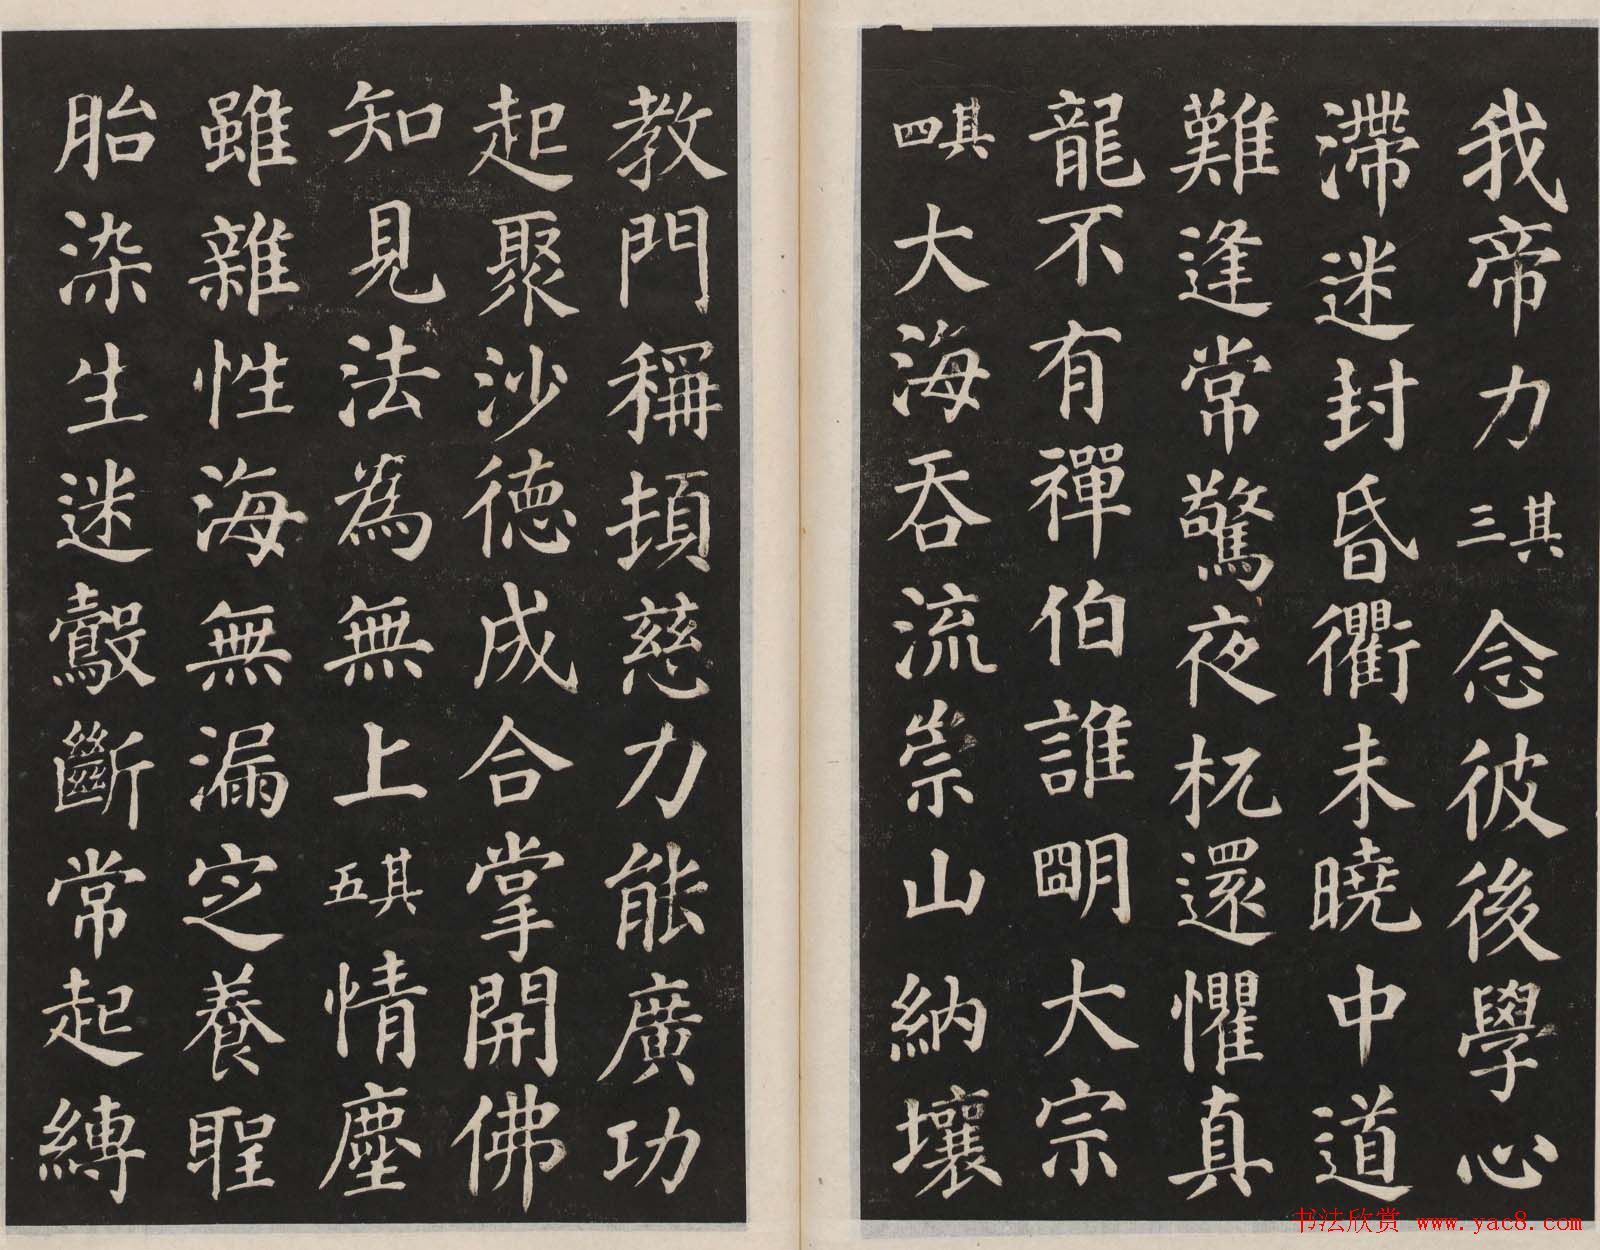 我帝力其三念彼後學心
滯迷封昏衢未曉中道
難逢常驚夜杌還懼真
龍不有禪伯誰明大宗
其四大海吞流崇山納壤
教門稱頓慈力能廣功
起聚沙德成合掌開佛
知見法為無上其五情塵
雖雜性海無漏定養聖
胎染生迷鷇斷常起縛
书法欣赏 www.yac8.com